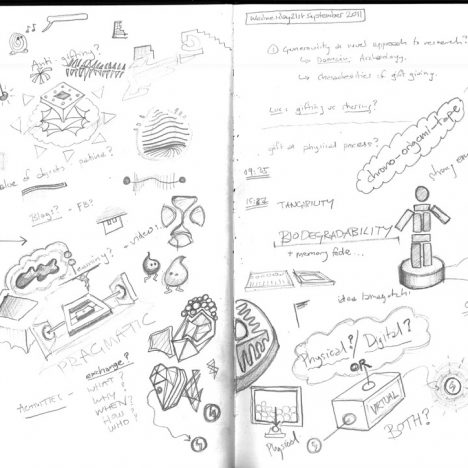 Anti-gifting?
Value of objects
Blogs? - FB?
video's.
PRAGMATIC
exchange?
Activities -
WHAT?
WHY?
WHEN?
HOW
WHO?
Wednesday 21st September 2011
① Generosity a novel approach to research?
↳ Domain, Archaeology.
↳ Characteristics of gift giving.
Luc: gifting vs sharing?
gift as physical process?
chrono-origami-tape
09:
TANGIBILITY
BIODEGRADABILITY
+ memory fade...
idea tamagotchi
Physical?/Digital?
OR
VIRTUAL
Physical
BOTH?